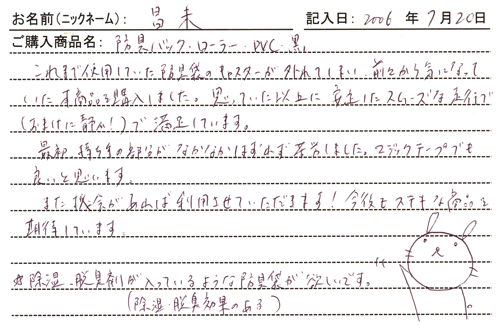 お名前(ニックネーム): 昌未 記入日: 2006 年 7 月 20 日
ご購入商品名: 防具バック・ローラー・PVC・黒
これまで使用していた防具袋のキャスターが外れてしまい、前々から気になって
いた本商品を購入しました。思っていた以上に安定したスムーズな走行で
(おまけに静か!)で満足しています。
最初、持ち手の部分がなかなかはずれず苦労しました。マジックテープでも
良いと思います。
また機会があれば利用させていただきます!今後もステキな商品を
期待しています。
※除湿・脱臭剤が入っているような防具袋が欲しいです。
(除湿・脱臭効果のある)